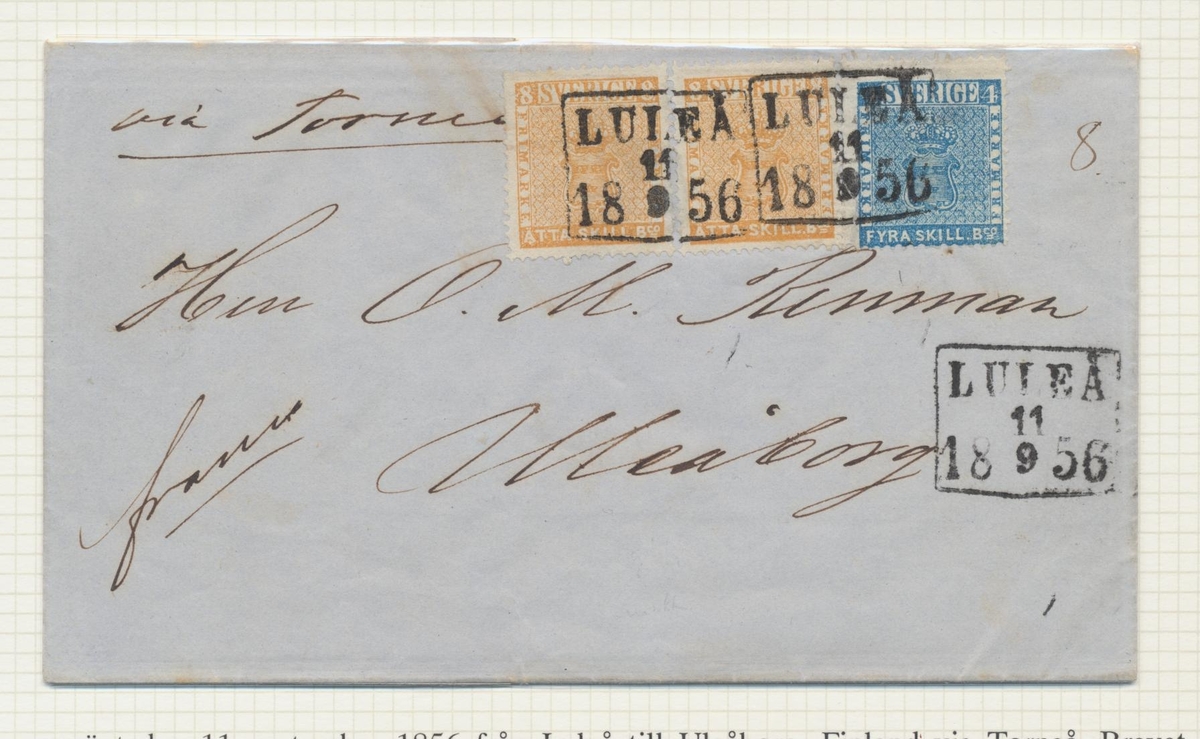 via Torneå
8 SVERIGE 8
FRIMÄRKE
ÅTTA SKILL. Bco
8 SVERIGE 8
ÅTTA SKILL. Bco
SVERIGE 4
FRIMÄRKE
FYRA SKILL. Bco
LULEÅ
11
18 9 56
LULEÅ
11
18 9 56
8.
Herr O. M. Renman
LULEÅ
11
18 9 56
franco
Uleåborg
11 september 1856 från Luleå till Uleåborg, Finland via Torneå. Brevet